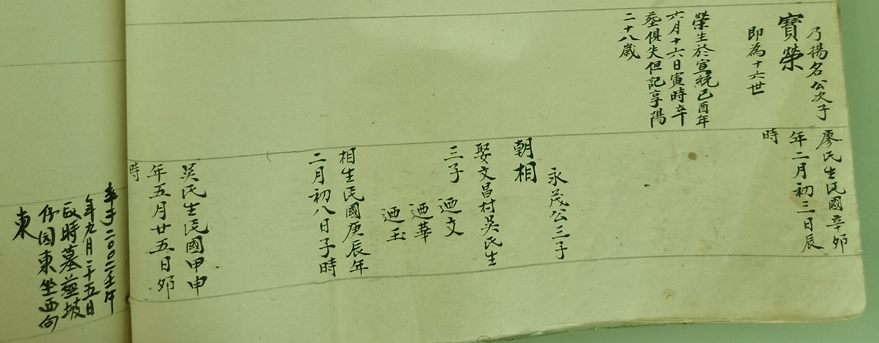 乃揚名公次子
寶榮
即為十六世
榮生於宣統己酉年
六月十六日寅時卒
塟俱失但記享陽
二十八歲
廖氏生民國辛卯
年二月初三日辰
時
永茂公三子
朝相
娶文昌村吳氏生
三子 迺文
迺華
迺玉
相生民國庚辰年
二月初八日子時
吳氏生民國甲申
年五月廿五日卯
時
卒于二00二壬午
年九月二十五日
時墓
仔园東坐西向
東